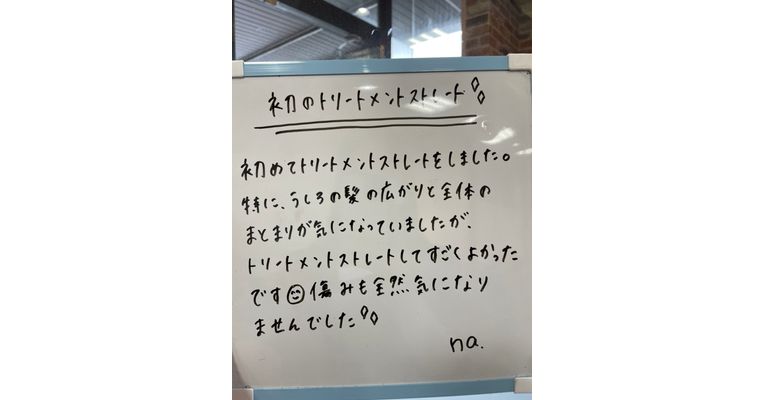 初のトリートメントストレート
初めてトリートメントストレートをしました。
特に、うしろの髪の広がりと全体の
まとまりが気になっていましたが、
トリートメントストレートしてすごくよかった
です😊傷みも全然気になり
ませんでした
na.